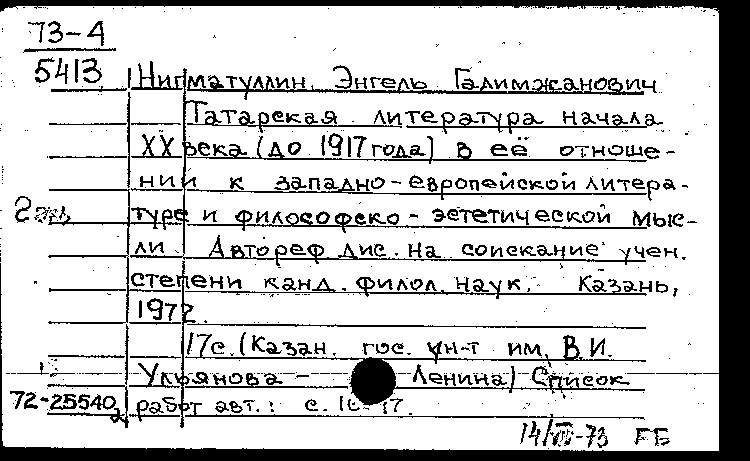 73-4
5413 Нигматуллин, Энгель Галимжанович
Татарская литература начала
XX века (до 1917 года) в её отноше-
нии к западно-европейской литера-
2 экз туре и философско-эстетической мыс-
ли. Автореф дис. на соискание учен.
степени канд. филол. наук. Казань,
1972.
17с. (Казан. гос. ун-т им. В.И.
Ульянова - Ленина) Список
72-25540 работ авт.: с. 16-17.
14/III-73 ГБ